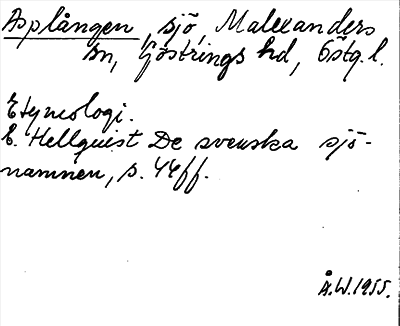 Asplången, sjö, Malexanders
sn, Göstrings hd, Östg. l.
Etymologi.
E. Hellquist De svenska sjö-
namnen, s. 44ff.
Å.W. 1955.